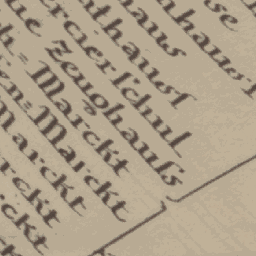 se
nhaus
haus
nthausl
rcierschul
ue Zeughauss
h=Marckt
en=Marckt
Marckt
rckt
ckt